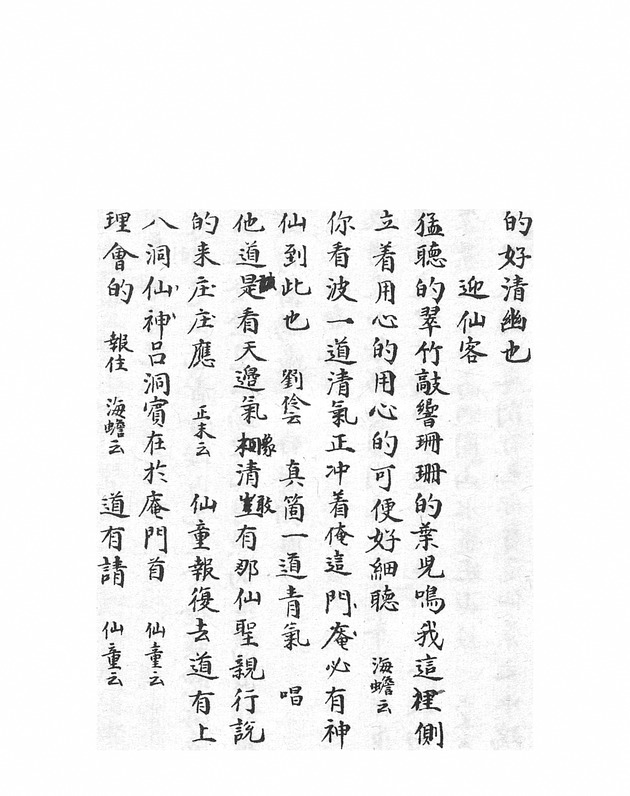 的好清幽也
迎仙客
猛聽的翠竹敲響珊珊的葉兒鳴我這裡側
立着用心的用心的可便好細聽 海蟾云
你看波一道清氣正冲着俺這門庵必有神
仙到此也 劉云 真箇一道青氣 唱
他道是看天邊氣像清敢有那仙聖親行說
的来庄庄應 正末云 仙童報復去道有上
八洞仙神吕洞賓在於庵門首 仙童云
理會的 報住 海蟾云 道有請 仙童云